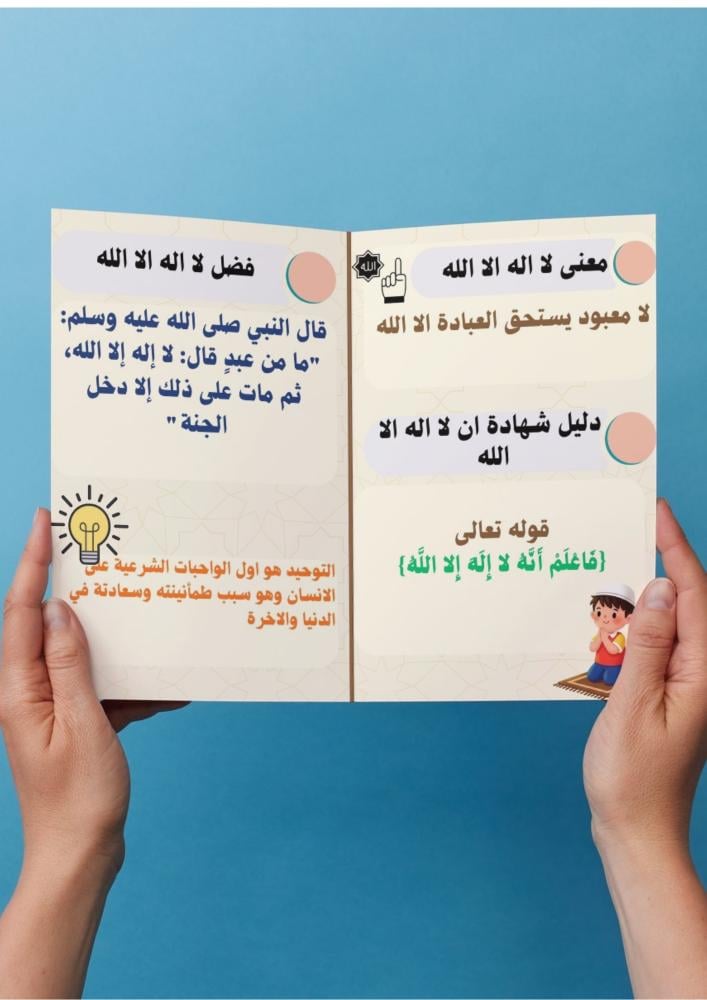 معنى لا اله الا الله
الله
لا معبود يستحق العبادة الا الله
دليل شهادة ان لا اله الا
الله
قوله تعالى
{فَاعْلَمْ أَنَّهُ لا إِلَهَ إِلا اللَّهُ}
فضل لا اله الا الله
قال النبي صلى الله عليه وسلم:
"ما من عبدٍ قال: لا إله إلا الله،
ثم مات على ذلك إلا دخل
الجنة"
التوحيد هو اول الواحبات الشرعية على
الانسان وهو سبب طمأنينته وسعادتة في
الدنيا والاخرة